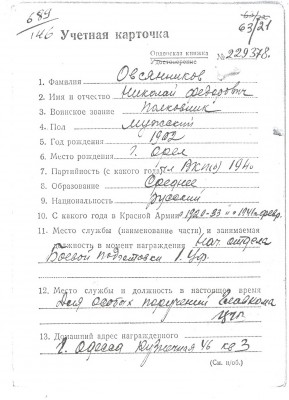 689
146
63/21
63/21
Учетная карточка
Орденская книжка
Удостоверение
№ 229378.
1. Фамилия Овсянников
2. Имя и отчество Николай Федорович
3. Воинское звание Полковник
4. Пол мужской
5. Год рождения 1902
6. Место рождения г. Орел
7. Партийность (с какого года) чл ВКП(б) 1940
8. Образование Среднее
9. Национальность русский
10. С какого года в Красной Армии 1920-33 и с 1941 февр.
11. Место службы (наименование части) и занимаемая
должность в момент награждения нач отдела
Боевой подготовки 1 Укр.
12. Место службы и должность в настоящее время
Для особых поручений Главкома
ЦГВ
13. Домашний адрес награжденного
г. Одесса Кузнечная 46 кв 3
(См. н/об.)